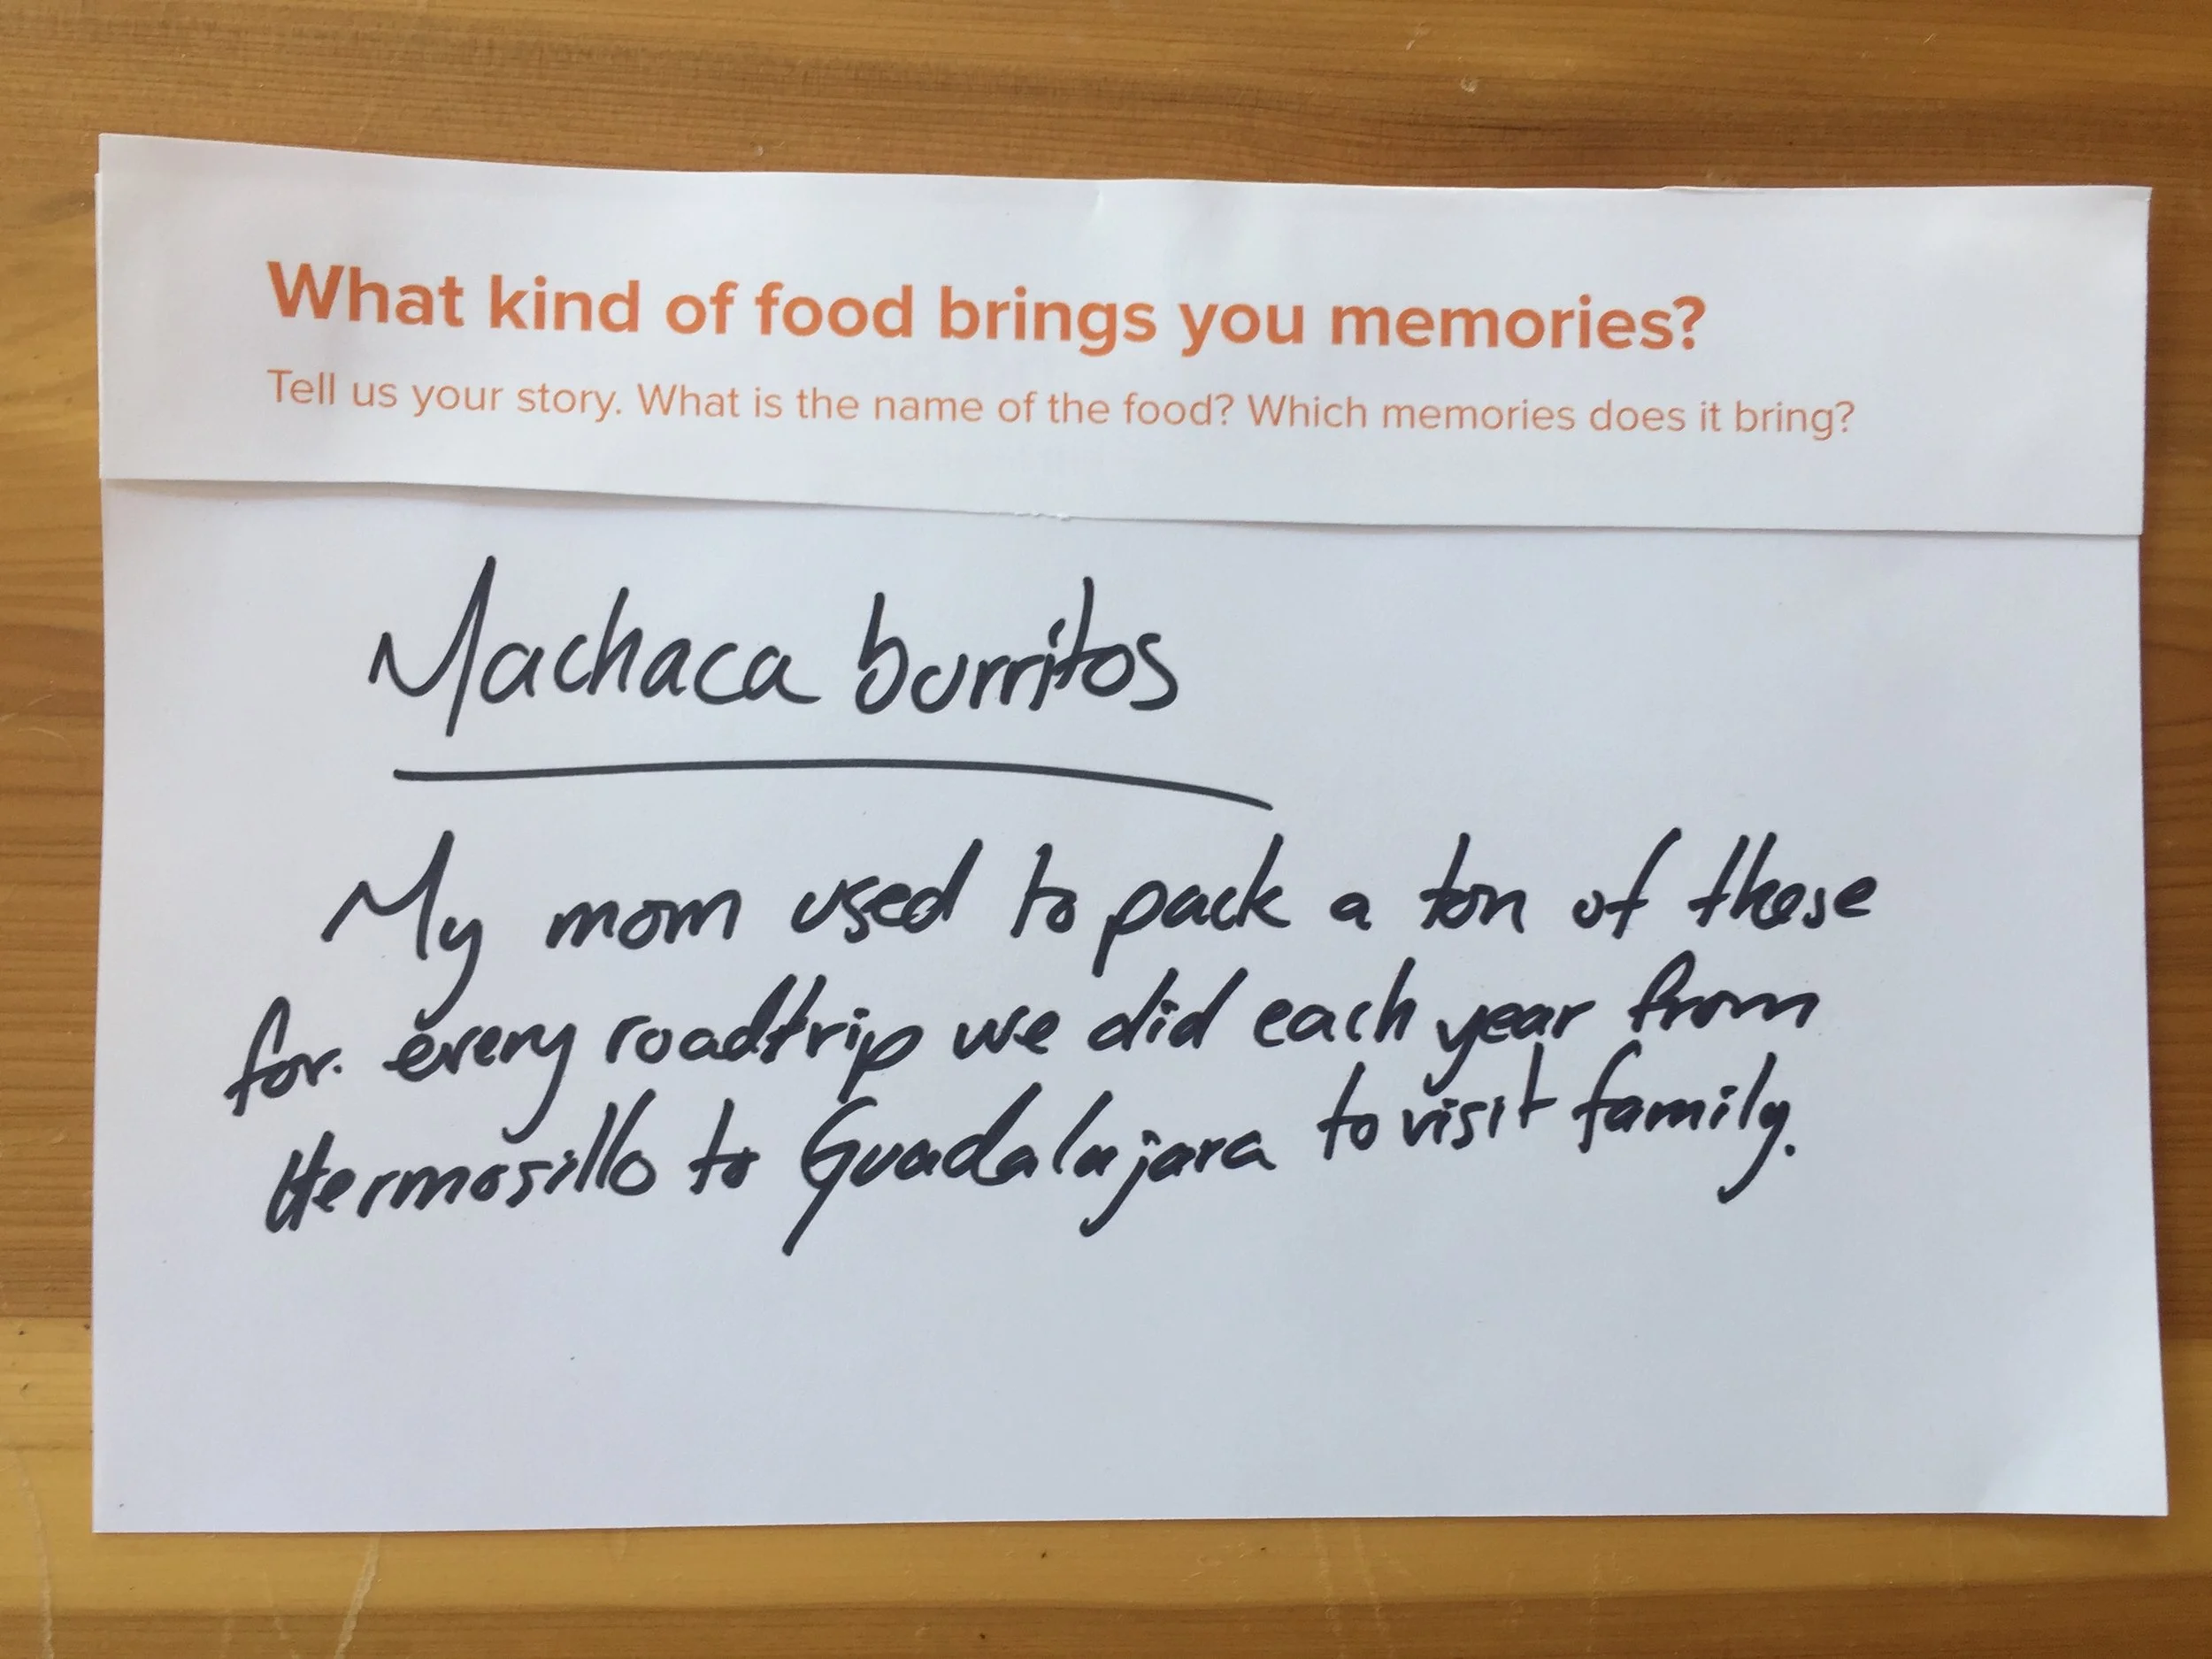 What kind of food brings you memories?
Tell us your story. What is the name of the food? Which memories does it bring?
Machaca burritos
My mom used to pack a ton of these
for. every roadtrip we did each year from
Hermosillo to Guadalajara to visit family.